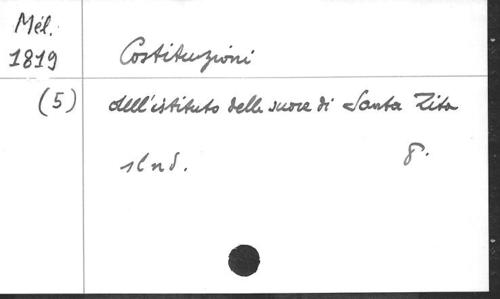 Mél.
1819 Costituzioni
(5) dell'istituto delle suore di Santa Zita
sl n d. 8°.